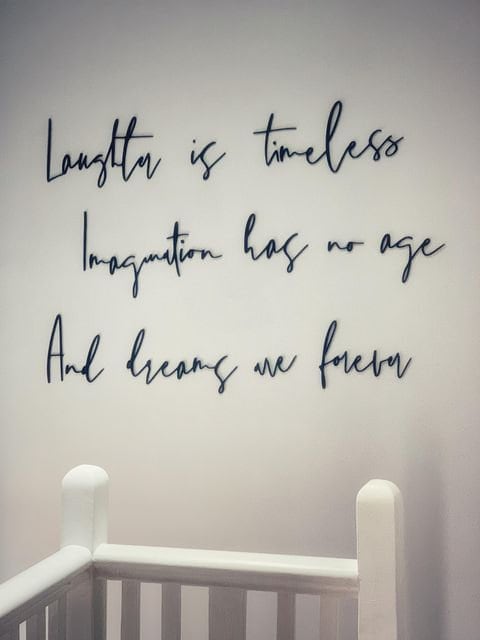 Laughter is timeless
Imagination has no age
And dreams are forever